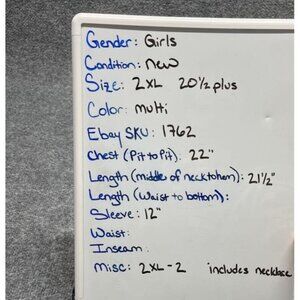 Gender: Girls
Condition: new
Size: 2XL 20 1/2 plus
Color: multi
Ebay SKU: 1762
Chest (Pit to Pit): 22"
Length (middle of neck to hem): 21 1/2"
Length (Waist to bottom):
Sleeve: 12"
Waist:
Inseam:
misc: 2XL-2 includes necklace